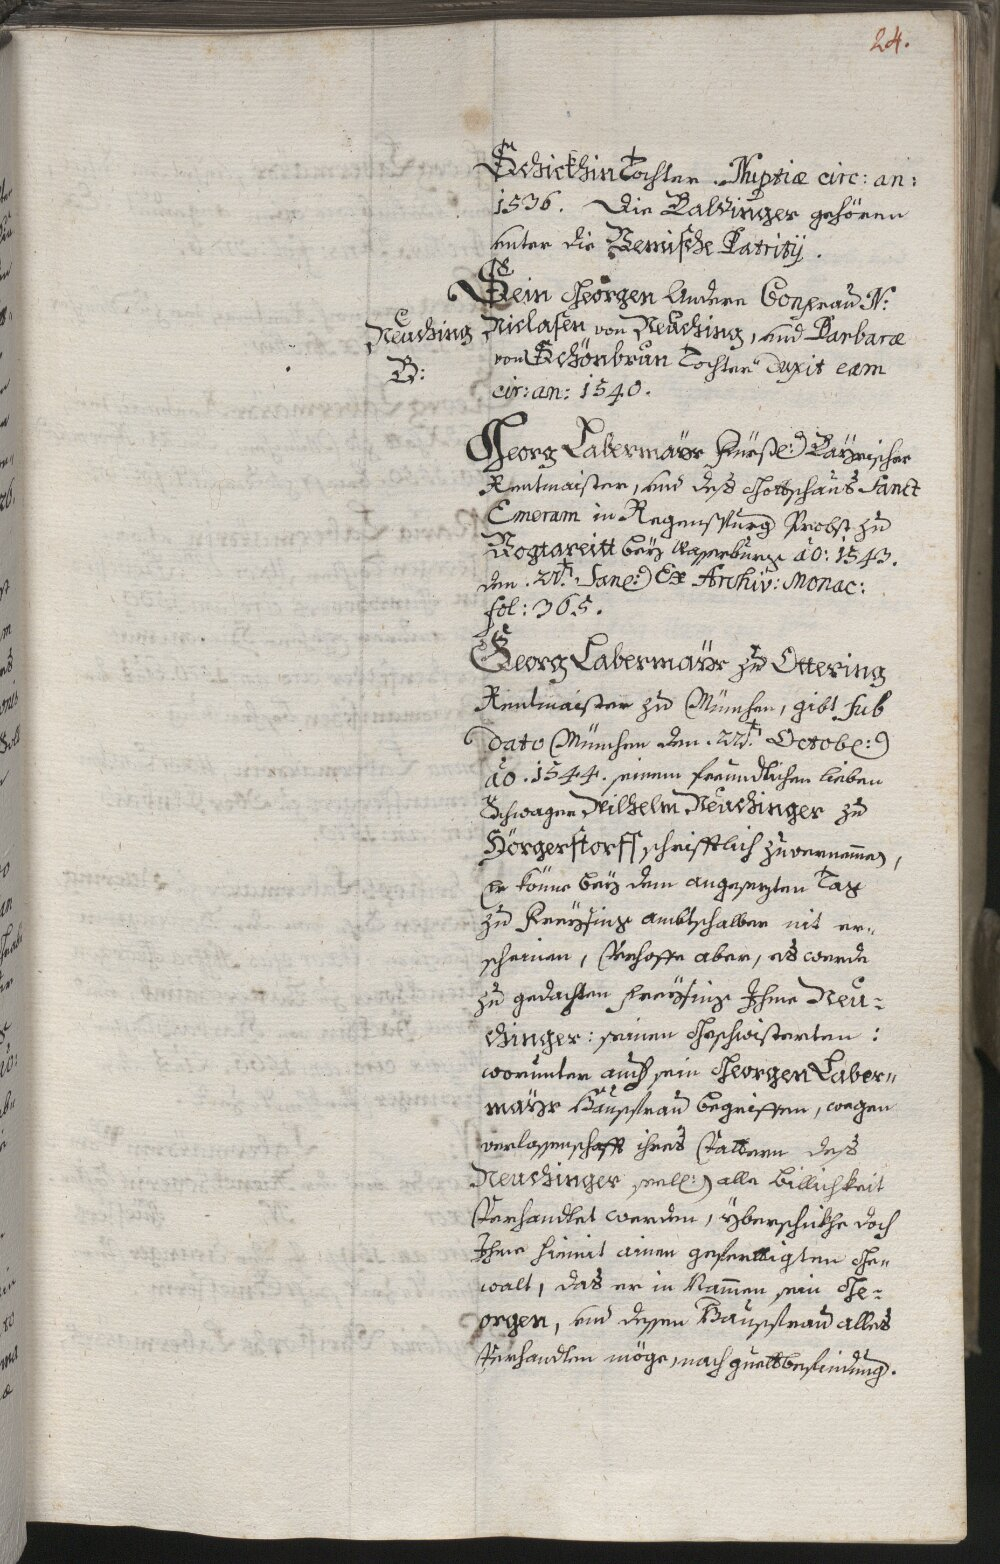 24.
Schickhin Tochter. Nuptiæ circ: an:
1536. Die Baldinger gehören
unter die Patritij.
Sein Georgen Andere Consrau N:
Neuching Niclasen von Neuching, und Barbaræ
B: von Schönbrun Tochter duxit eam
cir: an: 1540.
Georg Labermayr Fürstl: Bayrischer
Rentmaister, und deß Gottshauß Sanct
Emeram in Regenspurg Probst zu
Vogtareitt bey Wasserburg aõ: 1543.
den .22t. Jane: Ex Archiv: Monac:
fol: 365.
Georg Labermayr zu Ottering
Rentmaister zu München, gibt sub
dato München den .22t. Octobr:
aõ .1544. seinem freundtlichen lieben
Schwager Wilhelm Neuchinger zu
Hörgerstorff schrifftlich zuvernemmen,
Er könne bey dem angesezten Tag
zu Freysing ambtshalber nit er-
scheinen, Verhoffe aber, es werde
zu gedachten Freysing Ihme Neu-
chinger: seinen Geschwisterten:
worunter auch sein Georgen Laber-
mayr Haußfrau begriffen, wegen
verlassenschafft ihres Vattern deß
Neuchinger seel: alle billichkeit
Verhandlet werden, yberschickhe doch
Ihme hiemit ainen gefertigten Ge-
walt, das er in Nammen sein Ge-
orgen, und dessen Haußfrau alles
Verhandlen möge, nach guettbefindung.